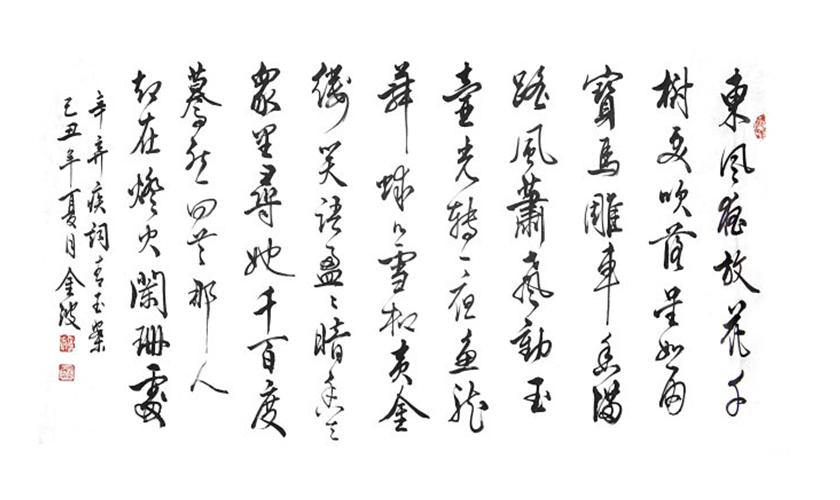 東風夜放花千
樹更吹落星如雨
寶馬雕車香滿
路風蕭聲動玉
壺光轉一夜魚龍
舞蛾兒雪柳黃金
縷笑語盈盈暗香去
眾里尋她千百度
驀然回首那人
却在燈火闌珊處
辛弃疾詞青玉案
己丑年夏月金波